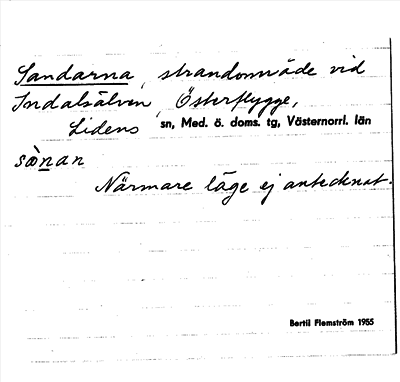 Sandarna, strandområde vid
Indalsälven, Österflygge,
Lidens sn, Med. ö. doms. tg, Västernorrl. län
sæ̀nan
Närmare läge ej antecknat.
Bertil Flemström 1955